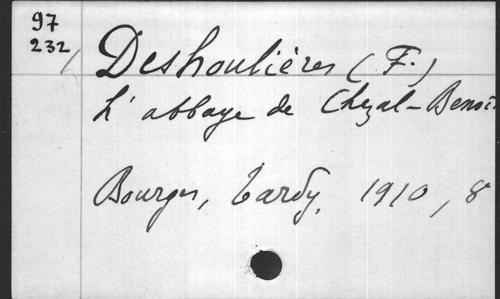 97
232
Deshoulières (F.)
L'abbaye de Chezal-Benoît
Bourges, Tardy, 1910, 8°